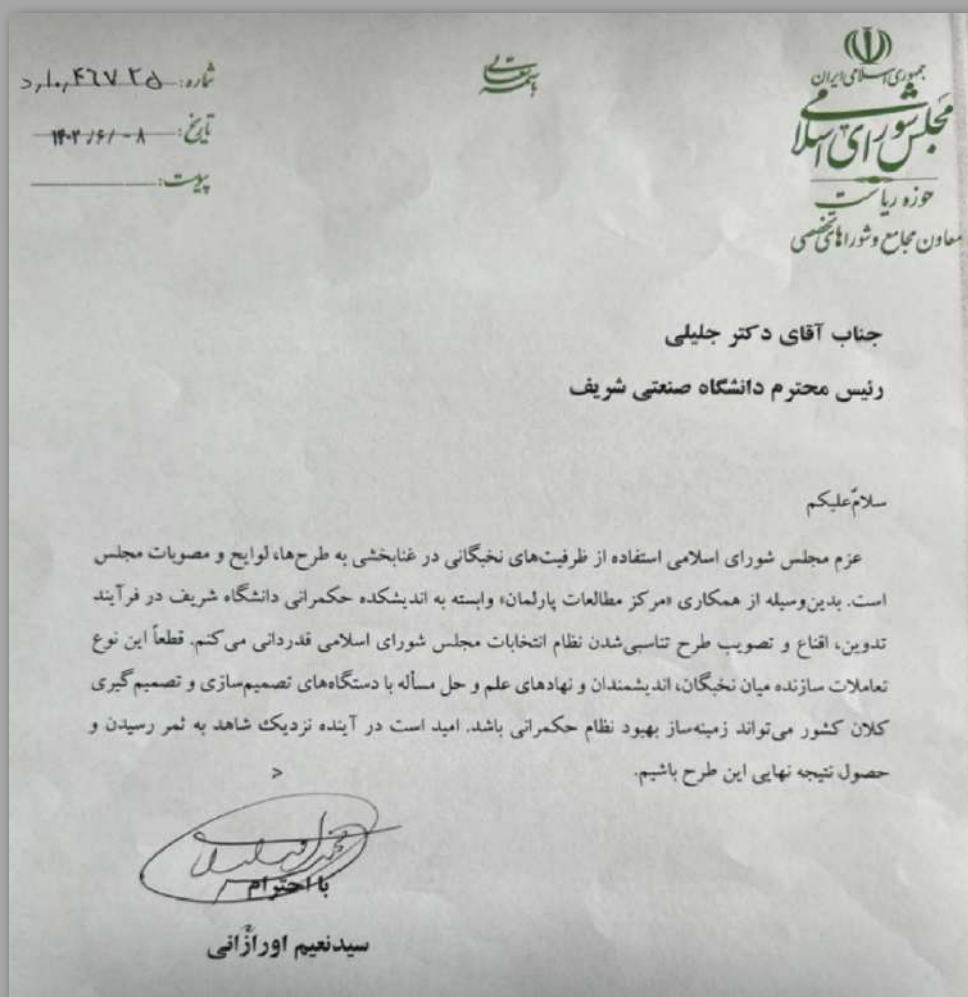 باسمه تعالی
جمهوری اسلامی ایران
مجلس شورای اسلامی
حوزه ریاست
معاون مجامع و شوراهای تخصصی
شماره:
تاریخ: ۱۴۰۲/۶/-۸
پیوست:
جناب آقای دکتر جلیلی
رئیس محترم دانشگاه صنعتی شریف
سلامٌ‌علیکم
عزم مجلس شورای اسلامی استفاده از ظرفیت‌های نخبگانی در غنابخشی به طرح‌ها، لوایح و مصوبات مجلس
است. بدین‌وسیله از همکاری «مرکز مطالعات پارلمان» وابسته به اندیشکده حکمرانی دانشگاه شریف در فرآیند
تدوین، اقناع و تصویب طرح تناسبی‌شدن نظام انتخابات مجلس شورای اسلامی قدردانی می‌کنم. قطعاً این نوع
تعاملات سازنده میان نخبگان، اندیشمندان و نهادهای علم و حل مسأله با دستگاه‌های تصمیم‌سازی و تصمیم‌گیری
کلان کشور می‌تواند زمینه‌ساز بهبود نظام حکمرانی باشد. امید است در آینده نزدیک شاهد به ثمر رسیدن و
حصول نتیجه نهایی این طرح باشیم.
با احترام
سیدنعیم اورازانی